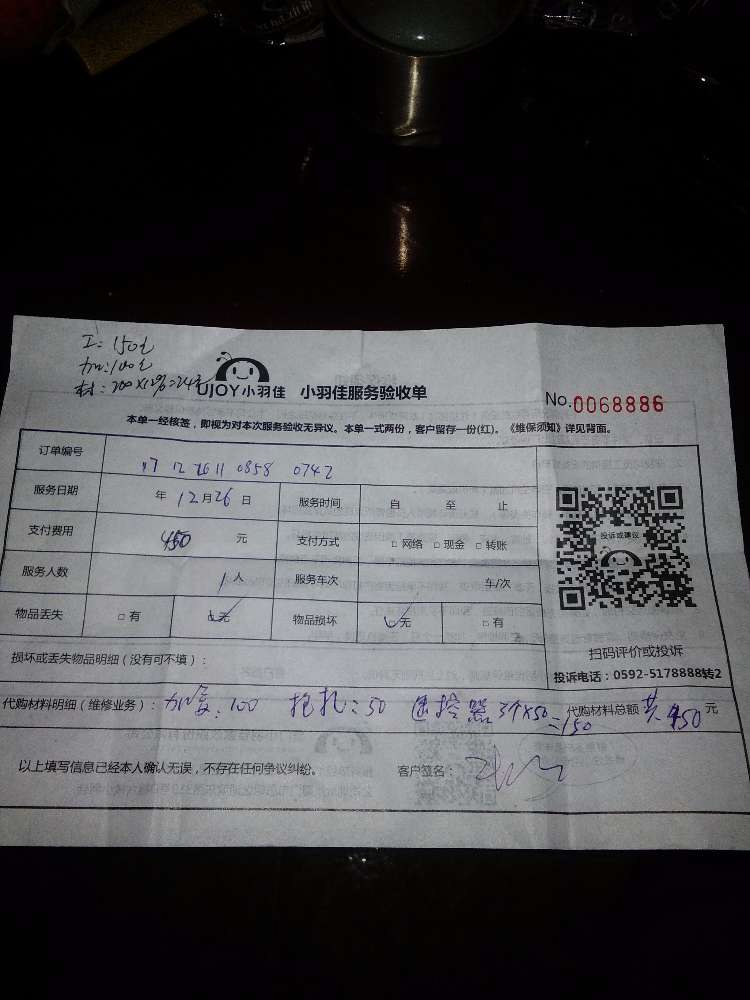 工：150元
加：100元
材：200×12%=24元
UJOY小羽佳 小羽佳服务验收单
No.0068886
本单一经核签，即视为对本次服务验收无异议。本单一式两份，客户留存一份(红)。《维保须知》详见背面。
订单编号 17 12 26 11 0858 0742
服务日期 年 12月26日 服务时间 自 至 止
支付费用 450 元 支付方式 □网络 □现金 □转账
投诉或建议
服务人数 1人 服务车次 车/次
物品丢失 □有 □无 物品损坏 □无 □有
扫码评价或投诉
损坏或丢失物品明细（没有可不填）：
投诉电话：0592-5178888转2
代购材料明细（维修业务）：加氟：100 :50 遥控器3个×50=150 代购材料总额 共450元
以上填写信息已经本人确认无误，不存在任何争议纠纷。 客户签名：